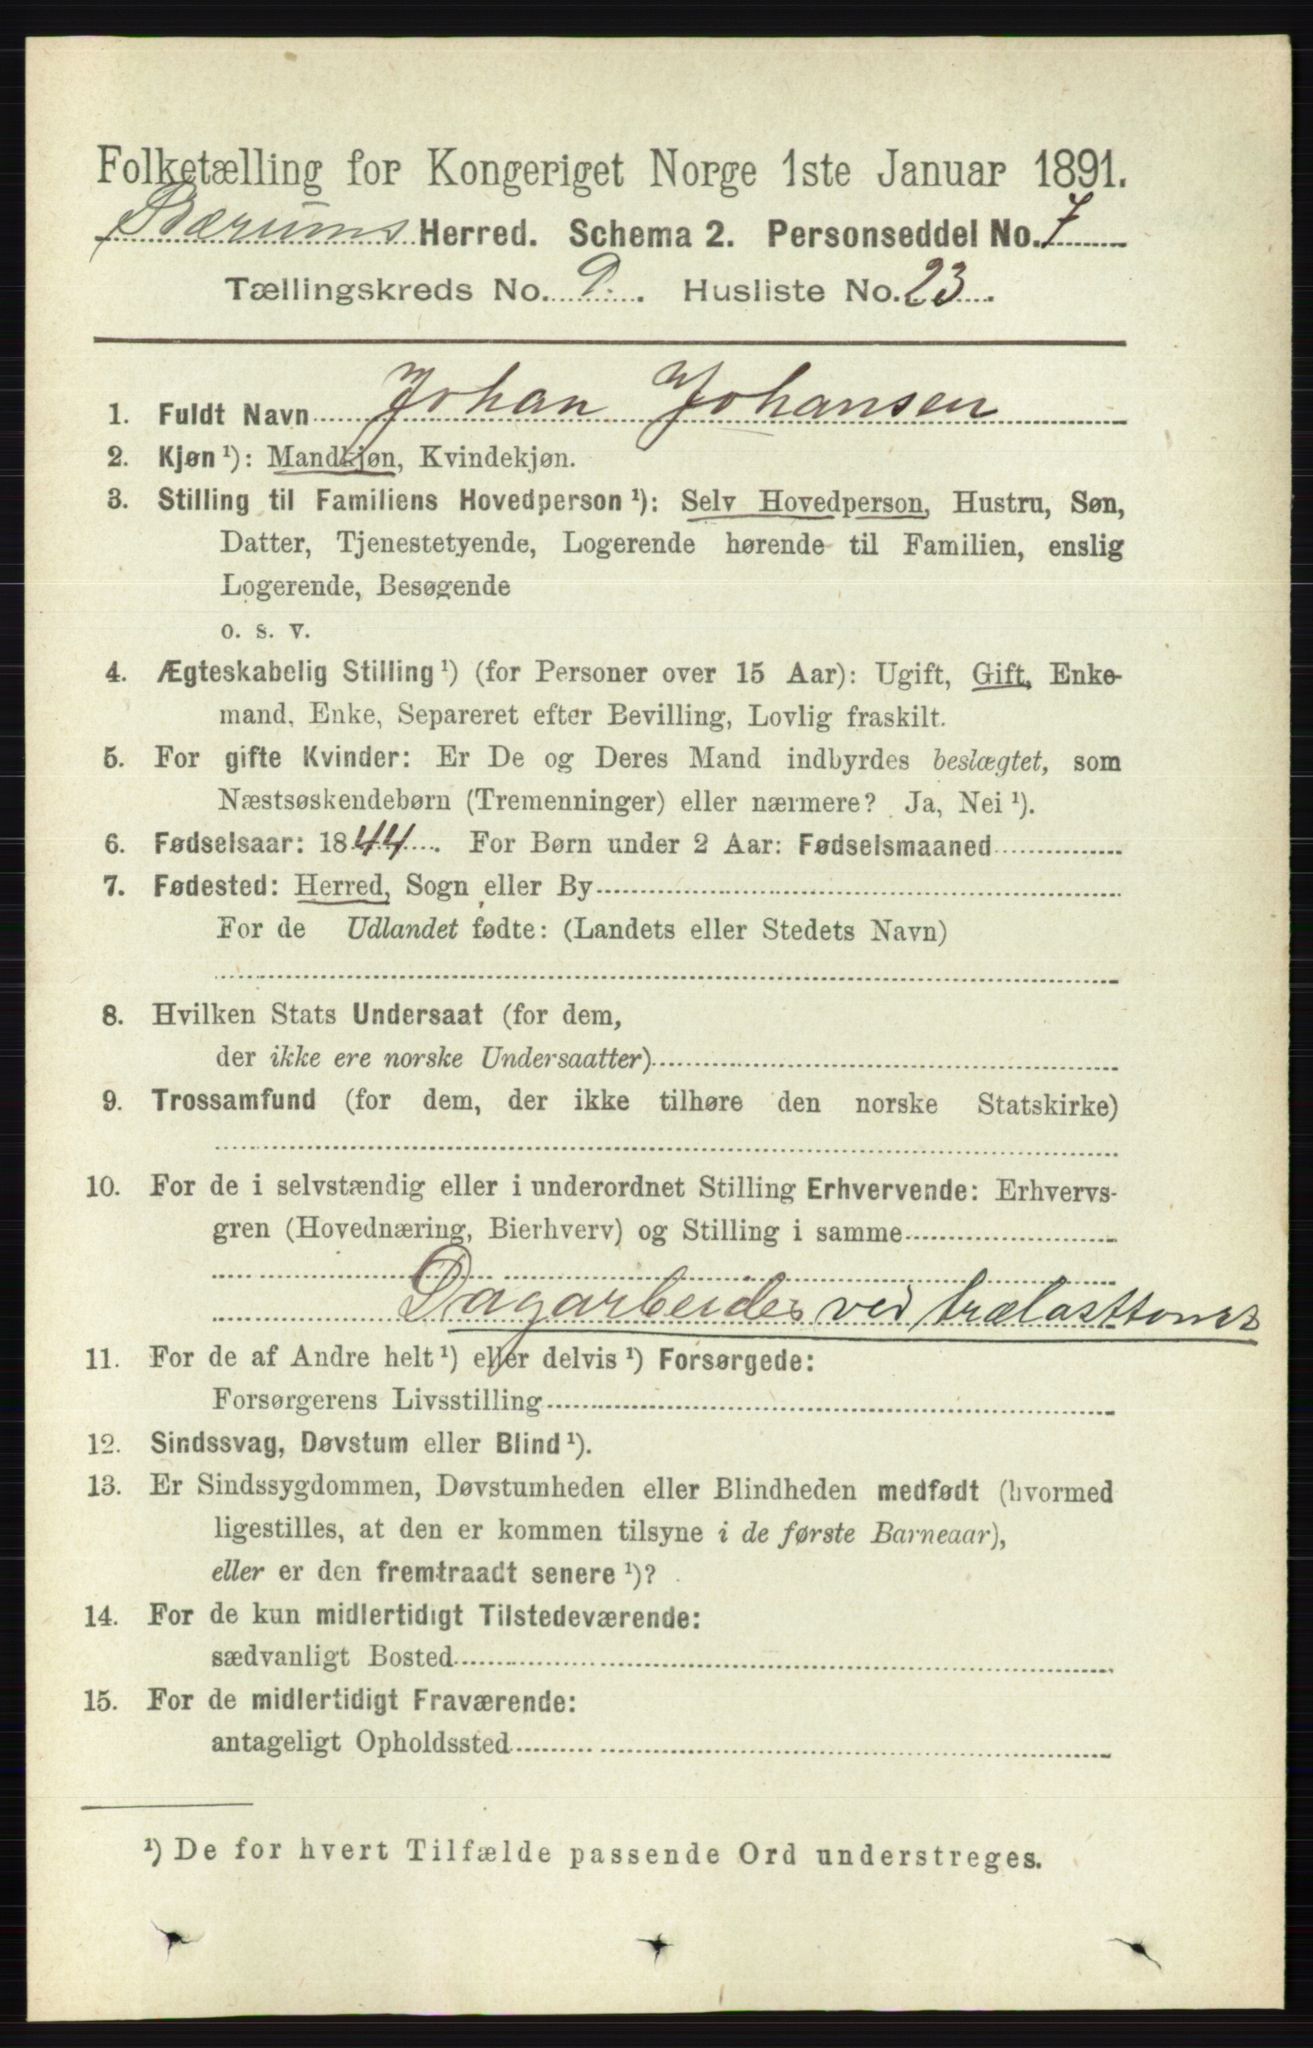 Folketælling for Kongeriget Norge 1ste Januar 1891.
Bærums Herred. Schema 2. Personseddel No. 7
Tællingskreds No. 9. Husliste No. 23.
1. Fuldt Navn Johan Johansen
2. Kjøn ¹): Mandkjøn, Kvindekjøn.
3. Stilling til Familiens Hovedperson ¹): Selv Hovedperson, Hustru, Søn,
Datter, Tjenestetyende, Logerende hørende til Familien, enslig
Logerende, Besøgende
o. s. v.
4. Ægteskabelig Stilling ¹) (for Personer over 15 Aar): Ugift, Gift, Enke-
mand, Enke, Separeret efter Bevilling, Lovlig fraskilt.
5. For gifte Kvinder: Er De og Deres Mand indbyrdes beslægtet, som
Næstsøskendebørn (Tremenninger) eller nærmere? Ja, Nei ¹).
6. Fødselsaar: 1844. For Børn under 2 Aar: Fødselsmaaned
7. Fødested: Herred, Sogn eller By
For de Udlandet fødte: (Landets eller Stedets Navn)
8. Hvilken Stats Undersaat (for dem,
der ikke ere norske Undersaatter)
9. Trossamfund (for dem, der ikke tilhøre den norske Statskirke)
10. For de i selvstændig eller i underordnet Stilling Erhvervende: Erhvervs-
gren (Hovednæring, Bierhverv) og Stilling i samme
Dagarbeider ved trælasttomt
11. For de af Andre helt ¹) eller delvis ¹) Forsørgede:
Forsørgerens Livsstilling
12. Sindssvag, Døvstum eller Blind ¹).
13. Er Sindssygdommen, Døvstumheden eller Blindheden medfødt (hvormed
ligestilles, at den er kommen tilsyne i de første Barneaar),
eller er den fremtraadt senere ¹)?
14. For de kun midlertidigt Tilstedeværende:
sædvanligt Bosted
15. For de midlertidigt Fraværende:
antageligt Opholdssted
¹) De for hvert Tilfælde passende Ord understreges.